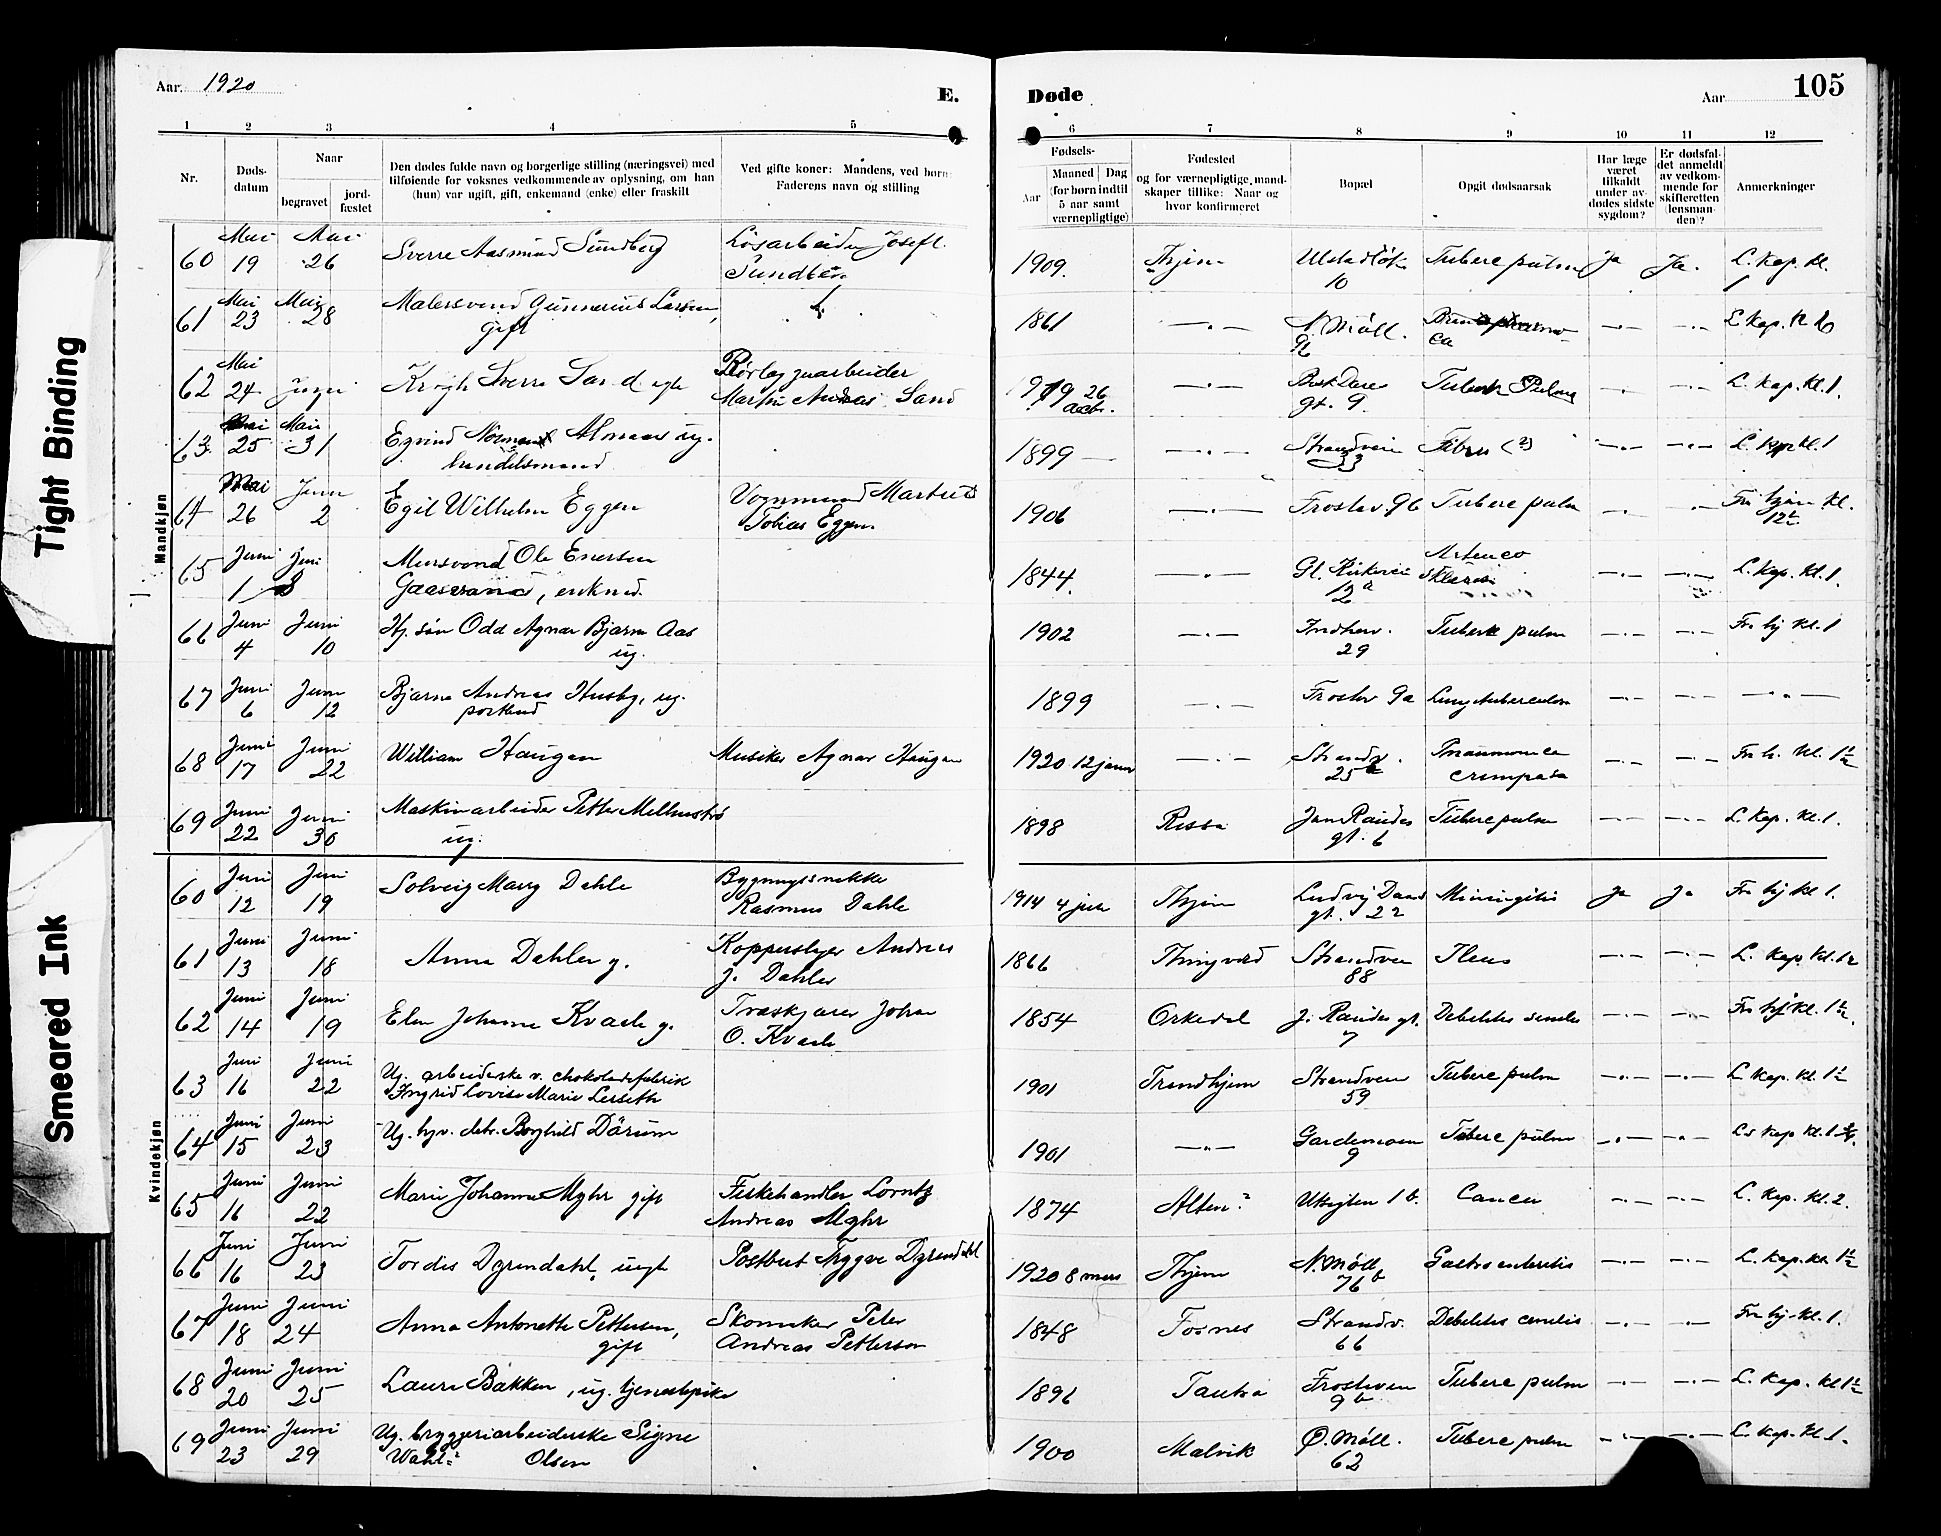 Aar. 1920
E.
Døde
Aar
105
1 2 3 4 5 6 7 8 9 10 11 12
Nr.
Døds-
datum
Naar
begravet
jord-
fæstet
Den dødes fulde navn og borgerlige stilling (næringsvei) med
tilføiende for voksnes vedkommende av oplysning, om han
(hun) var ugift, gift, enkemand (enke) eller fraskilt
Ved gifte koner: Mandens, ved børn
Faderens navn og stilling
Fødsels-
Aar
Maaned Dag
(for børn indtil
5 aar samt
værnepligtige)
Fødested
og for værnepligtige mand-
skaper tillike: Naar og
hvor konfirmeret
Bopæl
Opgit dødsaarsak
Har læge
været
tilkaldt
under av-
dødes sidste
sygdom?
Er dødsfal-
det anmeldt
av vedkom-
mende for
skifteretten
(lensman-
den)?
Anmerkninger
Tight Binding
Smeared Ink
Mandkjøn
60 Mai 19 Mai 26 Sverre Aasmund Sundberg Løsarbeider Josef L. Sundberg 1909. Thjem 10 Tuberc pulm Ja Ja. L. Kap. Kl. 1
61 Mai 23 Mai 28 Malersvend Gunnerius Larsen, gift 1861 —"— N. Møll. 96 —"— —"— L. Kap. Kl
62 Mai 24 Krogh Sverre Martin Andreas Sand 1919 26 —"— gt. 9. —"— —"— L. Kap. Kl. 1.
63 Mai 25 Mai 31 Almaas ug. handelsmand 1899 —"— Strandveien 33 (?) —"— —"— L. Kap Kl. 1
64 Mai 26 Juni 2 Egil Wilhelm Eggen Tobias Eggen 1906 —"— Frostav. 96 Tuberc pulm —"— —"— Fr hjem Kl. 12½
65 Juni 1 Juni 8 Mursvend Ole Enersen enkmd. 1844. —"— Gl. Kirkevei 12a —"— —"— L. Kap. Kl. 1.
66 Juni 4 Juni 10 Hj. søn Odd Agnar Bjarne Aas ug. 1902 —"— Indherv. 29 Tuberk pulm —"— —"— Fr hj Kl. 1
67 Juni 6 Juni 12 Bjarne Andreas Husby, ug. postbud 1899 —"— Frostav 9a Lungetuberculose —"— —"— —"—
68 Juni 17 Juni 22 William Haugen Musiker Agnar Haugen 1920 12 janu —"— Strandv. 25 —"— —"— Fr h. Kl. 1½
69 Juni 22 Juni 30 Maskinarbeider Petter ug. 1898 Rissa gt. 6 Tuberc pulm —"— —"— L. Kap. Kl. 1.
Kvindekjøn
60 Juni 12 Juni 19 Solveig Mary Dahle Bygningssnekker Rasmus Dahle 1914 4 juli Thjem Ludvig Daaes gt. 22 Ja Ja Fr hj Kl 1.
61 Juni 13 Juni 18 Anna Dahler g. Andreas J. Dahler 1866 Thingvold Strandveien 88 Ileus —"— —"— L. Kap. Kl. 1½
62 Juni 14 Juni 19 Johanna Kvaale g. Træskjærer Johan O. Kvaale 1854 Orkedal J. Raudes gt. 7 Debilitas senilis —"— —"— Fr hj Kl. 1½.
63 Juni 16 Juni 22 Ug. arbeiderske v. chokoladefabrik Ingrid Lovise Marie Lerseth 1901 Trondhjem Strandveien 59 Tuberc pulm —"— —"— L Kap. Kl. 1½
64 Juni 15 Juni 23 Ug. hjv. datr. Borghild Dårum 1901 —"— Gardemoen 9 Tuberc pulm —"— —"— L. Kap Kl. 1
65 Juni 16 Juni 22 Marie Johanna Myhr gift Fiskehandler Lorntz Andreas Myhr 1874 Alten? 1 b. Cancer —"— —"— L. Kap. Kl. 2.
66 Juni 16 Juni 23 Tordis Dyrendahl, Postbud Trygve Dyrendahl 1920 8 mars Thjem N. Møll 76b Gastroenteritis —"— —"— L. Kap. Kl. 1½
67 Juni 18 Juni 24 Anna Antonette Pettersen, gift Skomaker Peter Andreas Petterson 1848 Fosnes Strandv. 66 Debilitas senilis —"— —"— Fr hj. Kl. 1.
68 Juni 20 Juni 25 Laura Bakken, ug. tjenestepike 1896 Tautra Frostaveien 9b Tuberc pulm —"— —"— L. Kap. Kl 1½
69 Juni 23 Juni 29 Ug. bryggeriarbeiderske Signe Olsen 1900 Malvik Ø. Møll. 62 Tuberc pulm —"— —"— L. Kap. Kl. 1.